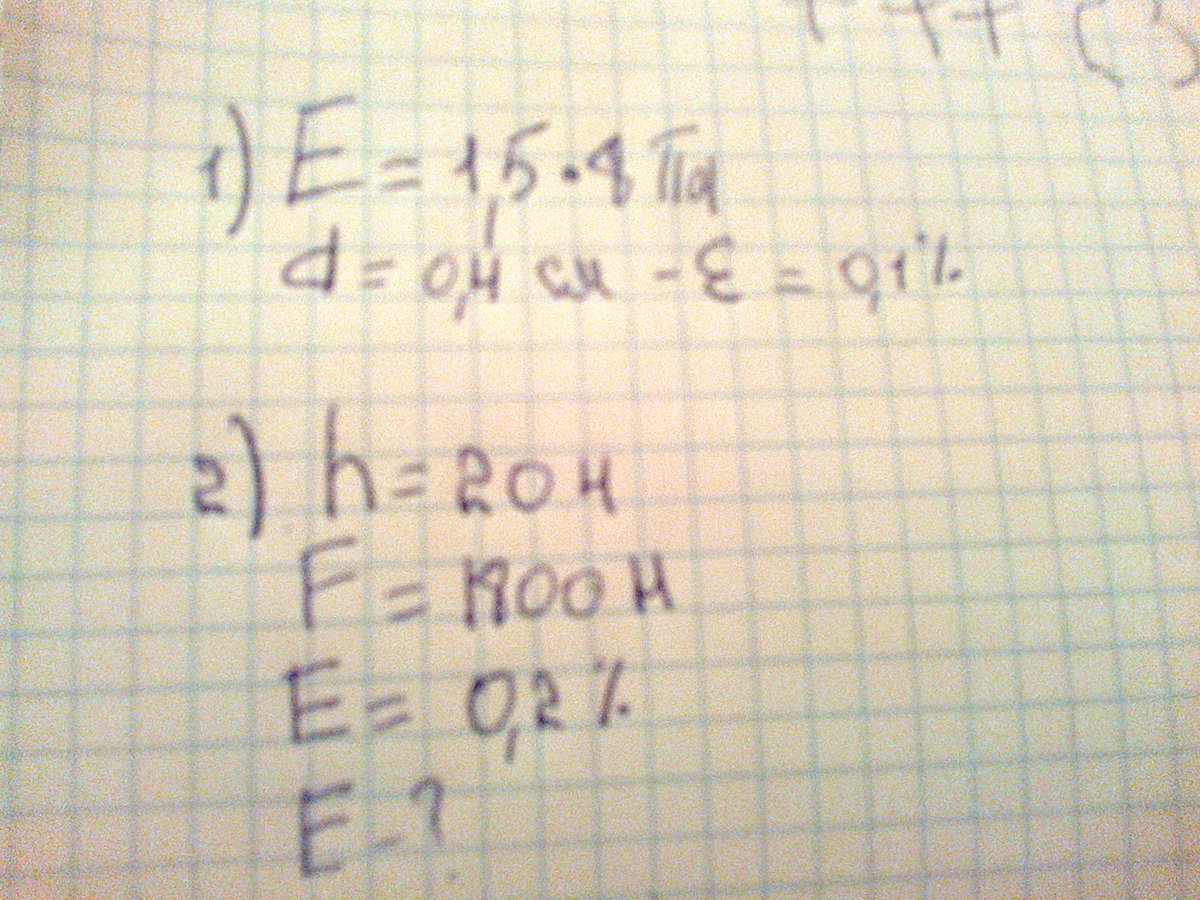 1) E = 1,5 · 8 Па
d = 0,4 см - ε = 0,1%
2) h = 20 м
F = 1900 Н
E = 0,2%
E - ?